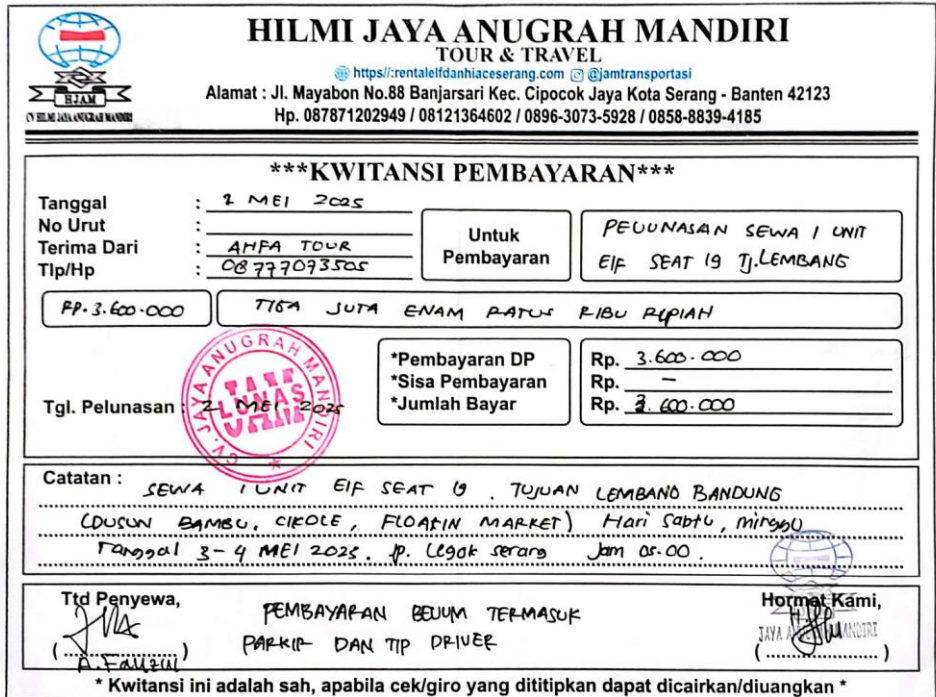 HILMI JAYA ANUGRAH MANDIRI
TOUR & TRAVEL
https//:rentalelfdanhiaceserang.com @jamtransportasi
Alamat : Jl. Mayabon No.88 Banjarsari Kec. Cipocok Jaya Kota Serang - Banten 42123
Hp. 087871202949 / 08121364602 / 0896-3073-5928 / 0858-8839-4185
HJAM
CV HILMI JAYA ANUGRAH MANDIRI
***KWITANSI PEMBAYARAN***
Tanggal : 2 MEI 2025
No Urut :
Terima Dari : AHFA TOUR
Tlp/Hp : 08777093505
Untuk Pembayaran
PELUNASAN SEWA 1 UNIT
Elf SEAT 19 Tj.LEMBANG
RP. 3.600.000
TIGA JUTA ENAM RATUS RIBU RUPIAH
*Pembayaran DP Rp. 3.600.000
*Sisa Pembayaran Rp. –
*Jumlah Bayar Rp. 3.600.000
Tgl. Pelunasan : 2 MEI 2025
CV. JAYA ANUGRAH MANDIRI
LUNAS
Catatan :
SEWA 1 UNIT Elf SEAT 19 . TUJUAN LEMBANG BANDUNG
(DUSUN BAMBU, CIKOLE, FLOATIN MARKET) Hari Sabtu, minggu
Tanggal 3-4 MEI 2025. P. Legok serang Jam 05.00.
Ttd Penyewa,
A. Fauzul
PEMBAYARAN BELUM TERMASUK
PARKIR DAN TIP DRIVER
Hormat Kami,
JAYA MANDIRI
* Kwitansi ini adalah sah, apabila cek/giro yang dititipkan dapat dicairkan/diuangkan *